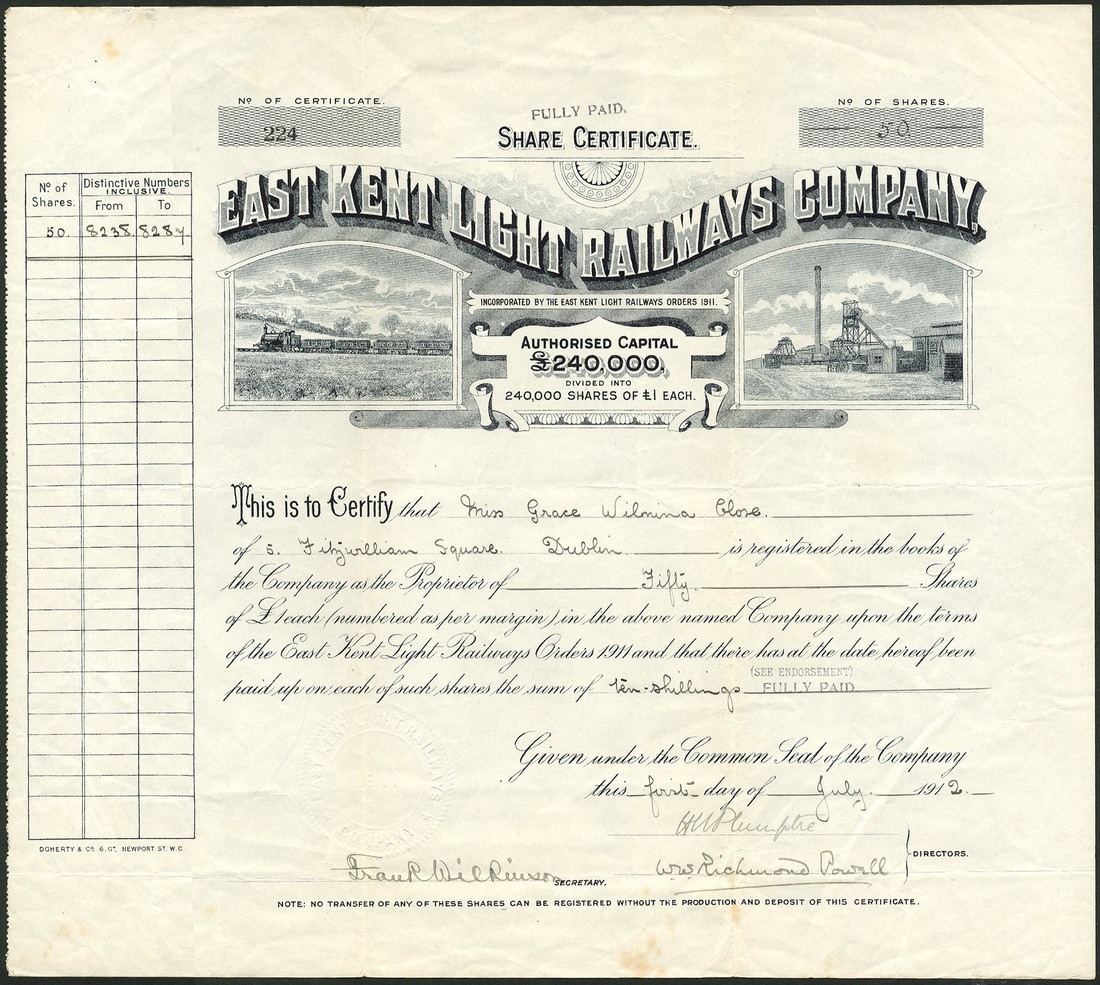 Nº OF CERTIFICATE.
224
FULLY PAID.
SHARE CERTIFICATE.
Nº OF SHARES.
50
EAST KENT LIGHT RAILWAYS COMPANY,
INCORPORATED BY THE EAST KENT LIGHT RAILWAYS ORDERS 1911.
AUTHORISED CAPITAL
£240,000,
DIVIDED INTO
240,000 SHARES OF £1 EACH.
Nº of Shares.
Distinctive Numbers
INCLUSIVE.
From To
50. 8238 8287
This is to Certify that Miss Grace Wilmina Close.
of 5. Fitzwilliam Square. Dublin. is registered in the books of
the Company as the Proprietor of Fifty. Shares
of £1 each (numbered as per margin) in the above named Company upon the terms
of the East Kent Light Railways Orders 1911 and that there has at the date hereof been
(SEE ENDORSEMENT)
paid up on each of such shares the sum of ten-shillings FULLY PAID
Given under the Common Seal of the Company
this first day of July. 1912.
H W Plumptre
DIRECTORS.
Frank Wilkinson SECRETARY.
WW Richmond Powell
DOHERTY & Cº. 6. Gᵗ. NEWPORT ST. W.C
NOTE: NO TRANSFER OF ANY OF THESE SHARES CAN BE REGISTERED WITHOUT THE PRODUCTION AND DEPOSIT OF THIS CERTIFICATE.